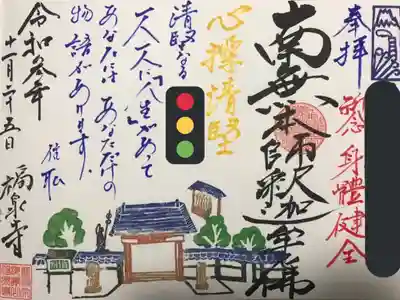 奉拝
身體健全
南無本師釈迦牟尼佛
清堅なる
一人一人に人生があって
あなたには あなただけの
物語があります。
令和参年
十一月二十五日
福泉寺